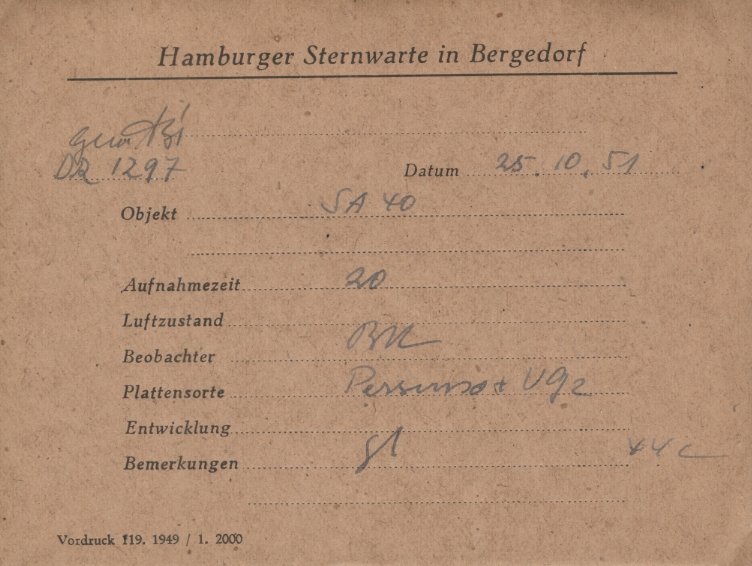 Hamburger Sternwarte in Bergedorf
DR 1297
Datum 25.10.51
Objekt SA 40
Aufnahmezeit 20
Luftzustand
Beobachter
Plattensorte UG2
Entwicklung
Bemerkungen gl
Vordruck 119. 1949 / 1. 2000